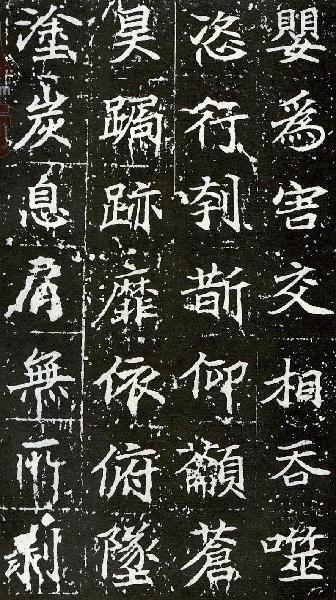 嬰為害交相吞噬
恣行刳斮仰籲蒼
昊跼跡靡依俯墜
塗炭息肩無所剥